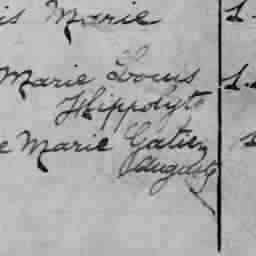 is Marie 1.
Marie Louis 1.
Hippolyte
e Marie Gatien
Auguste